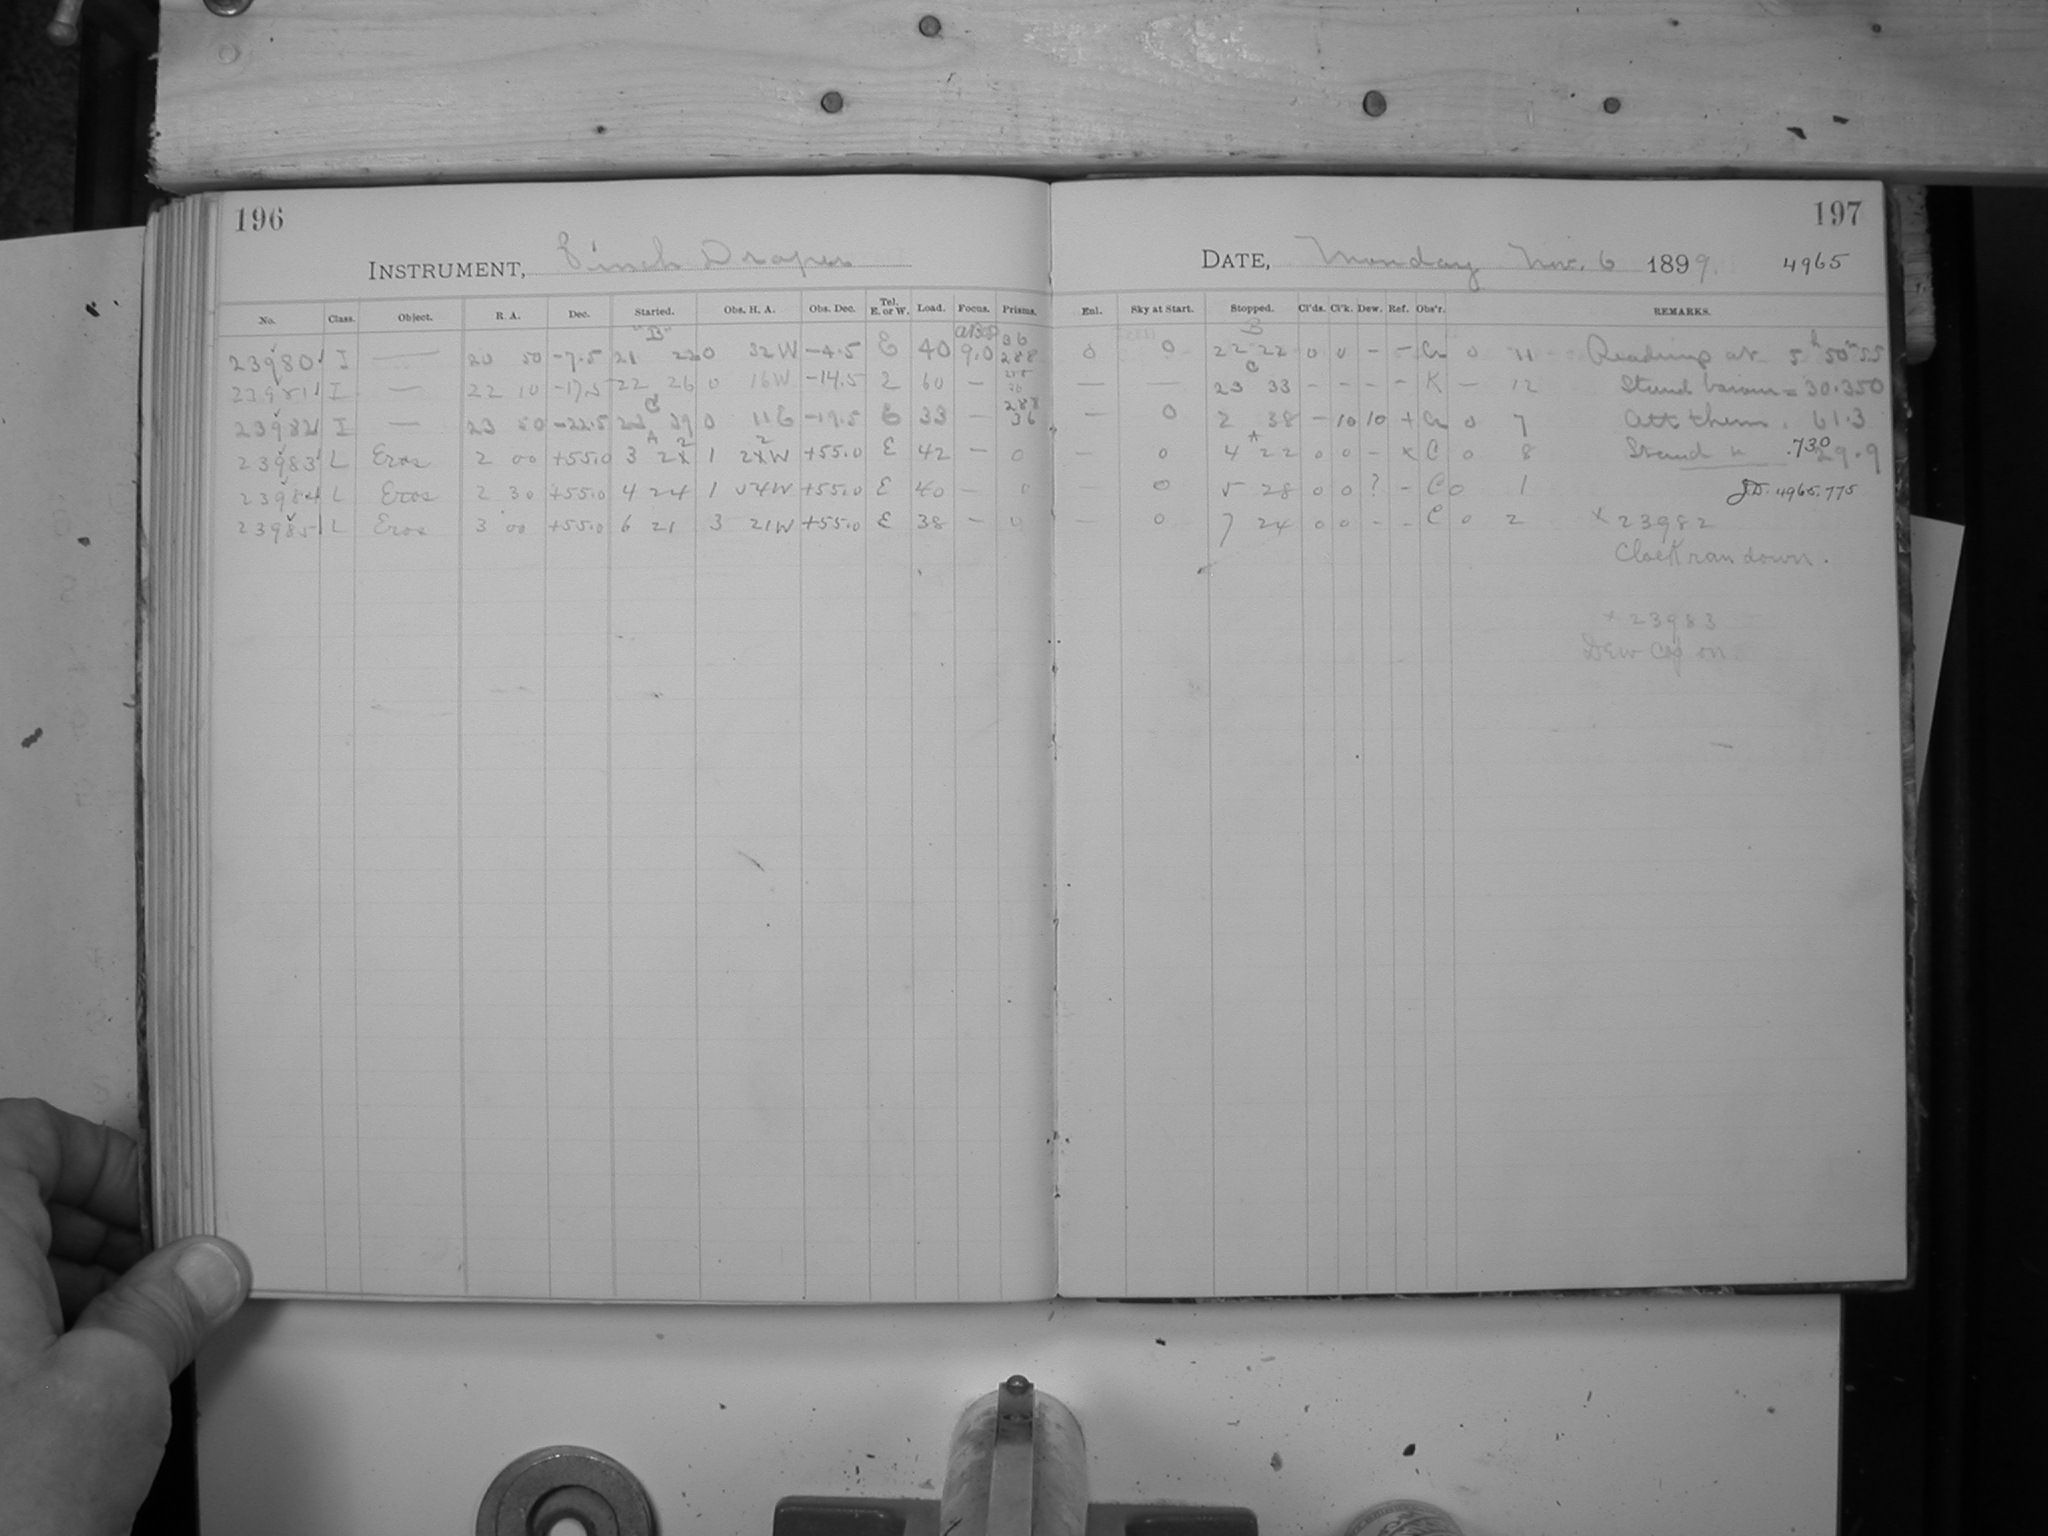 196
INSTRUMENT, 8 inch Draper
No. Class. Object. R. A. Dec. Started. Obs. H. A. Obs. Dec. Tel. E. or W. Load. Focus. Prisms.
23980 I — 20 50 -7.5 21 22 0 32W -4.5 E 40 9.0 36 288
23981 I — 22 10 -17.5 22 26 0 16W -14.5 E 60 —
23982 I — 23 50 -22.5 23 39 0 11E -19.5 E 33 — 288 36
23983 L Eros 2 00 +55.0 3 22 1 22W +55.0 E 42 — 0
23984 L Eros 2 30 +55.0 4 24 1 54W +55.0 E 40 — 0
23985 L Eros 3 00 +55.0 6 21 3 21W +55.0 E 38 — 0
197
DATE, Monday Nov. 6 1899. 4965
Enl. Sky at Start. Stopped. Cl'ds. Cl'k. Dew. Ref. Obs'r. REMARKS.
0 0 22 22 0 0 - - 0 11 Reading at 5h 50m 55
— — 23 33 - - - - K — 12 Stand barom = 30.350
— 0 2 38 - 10 10 + 0 7 Att therm. 61.3
— 0 4 22 0 0 - x C 0 8 Stand " .730 29.9
— 0 5 28 0 0 ? - C 0 1 J.D. 4965.775
— 0 7 24 0 0 - - C 0 2 x 23982
Clock ran down.
x 23983
Dew Cap on.